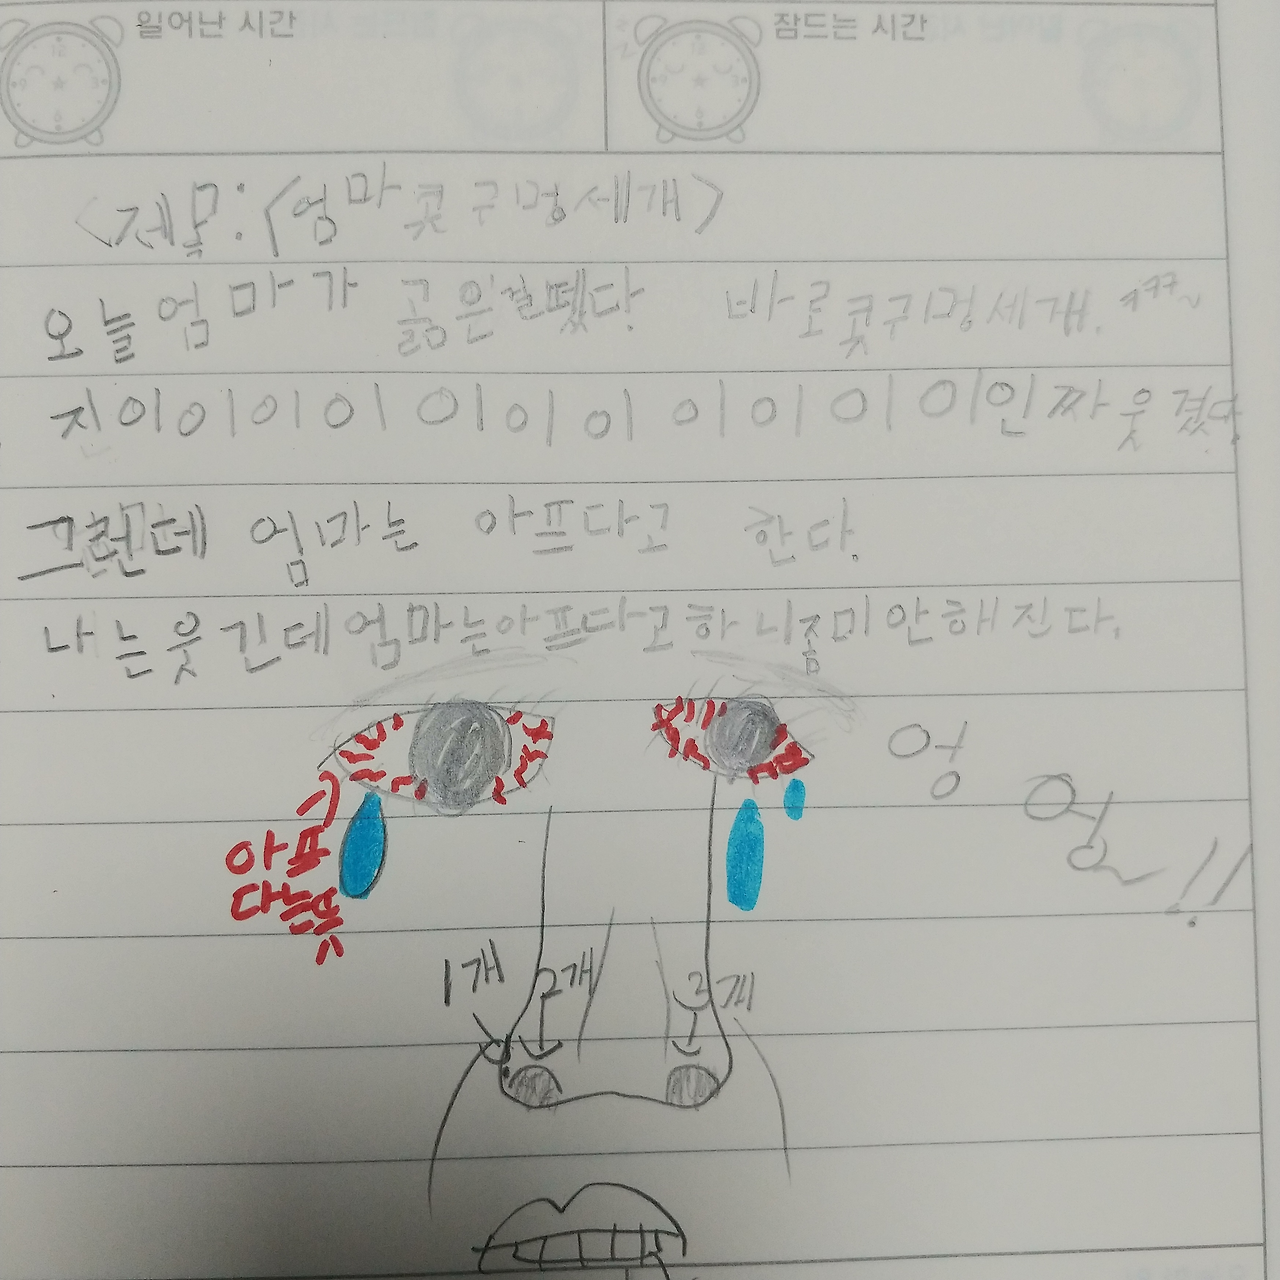 일어난 시간
잠드는 시간
<제목:<엄마콧구멍세개>
오늘 엄마가 곪은걸뗐다. 바로콧구멍세개. ㅋㅋㅋ~
진이이이이이이이이이이이인짜 웃겼다.
그런데 엄마는 아프다고 한다.
나는웃긴데엄마는아프다고하니좀미안해진다.
엉
엉~!!
아프
다
1개 2개 3개